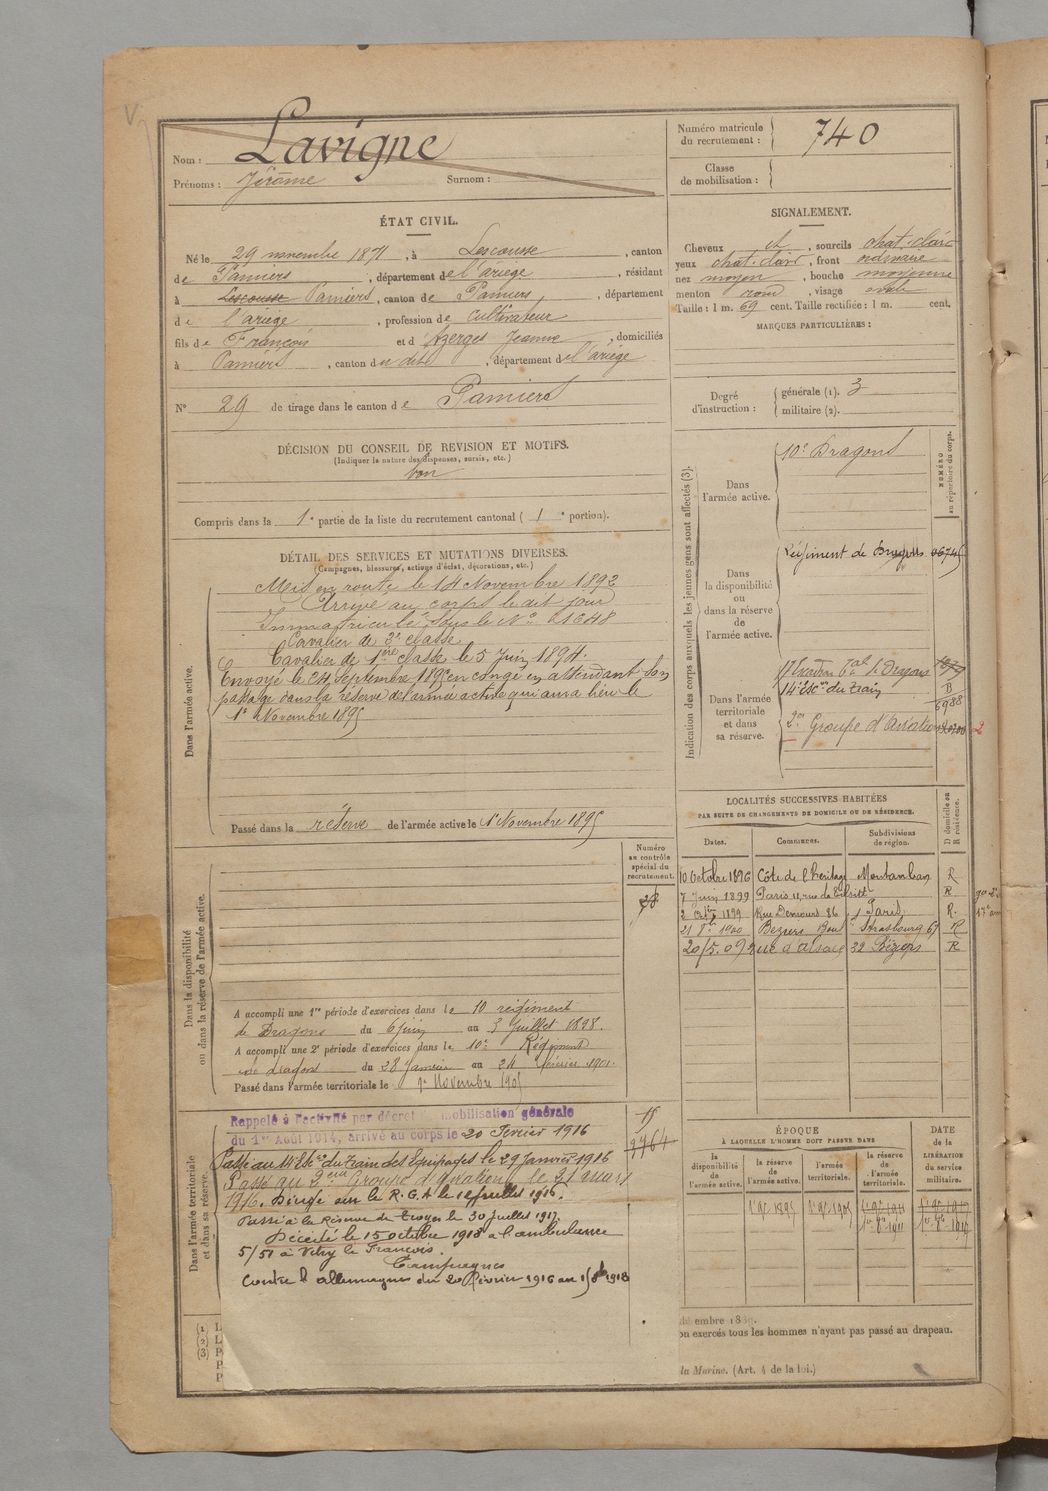 Nom : Lavigne
Prénoms : Jérôme Surnom :
ÉTAT CIVIL.
Né le 29 novembre 1871, à Lescousse, canton
de Pamiers, département de l'ariège, résidant
à Lescousse Pamiers, canton de Pamiers, département
de l'ariège, profession de cultivateur
fils de François et d'Azerges Jeanne, domiciliés
à Pamiers, canton du dit, département de l'ariège
N° 29 de tirage dans le canton de Pamiers
DÉCISION DU CONSEIL DE REVISION ET MOTIFS.
(Indiquer la nature des dispenses, sursis, etc.)
bon
Compris dans la 1e partie de la liste du recrutement cantonal ( 1e portion).
DÉTAIL DES SERVICES ET MUTATIONS DIVERSES.
(Campagnes, blessures, actions d'éclat, décorations, etc.)
Dans l'armée active.
Mis en route le 14 Novembre 1892
Arrivé au corps le dit jour
Immatriculé sous le N° 1648
Cavalier de 2e classe
Cavalier de 1ère classe le 5 Juin 1894.
Envoyé le 24 Septembre 1895 en congé en attendant son
passage dans la réserve de l'armée active qui aura lieu le
1er Novembre 1895
Passé dans la réserve de l'armée active le 1er Novembre 1895
Numéro
au contrôle
spécial du
recrutement.
Dans la disponibilité
ou dans la réserve de l'armée active.
A accompli une 1re période d'exercices dans le 10 régiment
de Dragons du 6 juin au 3 Juillet 1898.
A accompli une 2e période d'exercices dans le 10e Régiment
de dragons du 28 Janvier au 24 février 1901.
Passé dans l'armée territoriale le 1er Novembre 1905
Dans l'armée territoriale
et dans sa réserve.
Rappelé à l'activité par décret de mobilisation générale
du 1er Août 1914, arrivé au corps le 20 Février 1916
Passé au 14e Escon du Train des Equipages le 29 Janvier 1916
Passé au 2ème Groupe d'aviation le 21 mars
1916. Dirigé sur le R.G.A le 12 juillet 1916.
Passé à la Réserve de Troyes le 30 juillet 1917
Décédé le 15 octobre 1918 à l'ambulance
5/51 à Vitry le François.
Campagnes
Contre l'allemagne du 20 Février 1916 au 15 8bre 1918
15
9764
Numéro matricule
du recrutement : 740
Classe
de mobilisation :
SIGNALEMENT.
Cheveux ch, sourcils chat. clair
yeux chat. clair, front ordinaire
nez moyen, bouche moyenne
menton rond, visage ovale
Taille : 1 m. 69 cent. Taille rectifiée : 1 m. cent.
MARQUES PARTICULIÈRES :
Degré
d'instruction :
générale (1). 3
militaire (2).
Indication des corps auxquels les jeunes gens sont affectés (3).
NUMÉRO
au répertoire du corps.
Dans
l'armée active.
10e Dragons
Dans
la disponibilité
ou
dans la réserve
de
l'armée active.
Régiment de Dragons
Dans l'armée
territoriale
et dans
sa réserve.
17 Escadron Tal de Dragons
14e Escon du Train
B
6988
2e Groupe d'Aviation
2
LOCALITÉS SUCCESSIVES HABITÉES
PAR SUITE DE CHANGEMENTS DE DOMICILE OU DE RÉSIDENCE.
D domicile ou
R résidence.
Dates. Communes. Subdivisions
de région.
10 Octobre 1896 Côte de l'héritage Montauban R
7 Juin 1899 Paris 11, rue de Tilsitt R
2 Octbre 1899 Rue Demours 86 Paris R.
1900 Beziers Boul Strasbourg 67 R
20/5.09 rue d'alsace 32 Béziers R
ÉPOQUE
À LAQUELLE L'HOMME DOIT PASSER DANS
la
disponibilité
de
l'armée active.
la réserve
de
l'armée active.
l'armée
territoriale.
la réserve
de
l'armée
territoriale.
DATE
de la
LIBÉRATION
du service
militaire.
1er 9bre 1895 1er 9bre 1905
(1)
(2)
(3)
on exercés tous les hommes n'ayant pas passé au drapeau.
la Marine. (Art. 4 de la loi.)